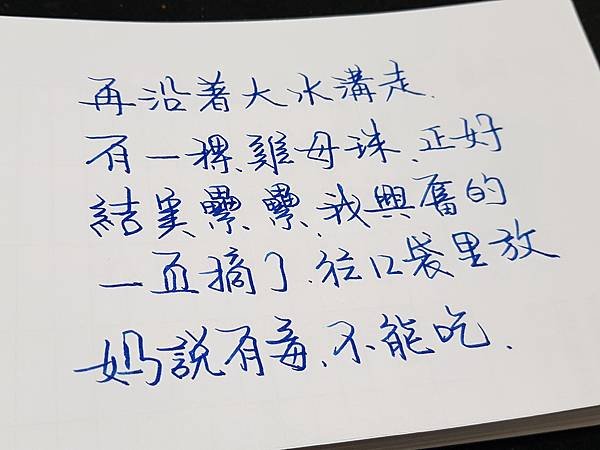 再沿着大水溝走.
有一棵雞母珠.正好
結実纍纍,我興奮的
一直摘了.往口袋里放
媽說有毒.不能吃.